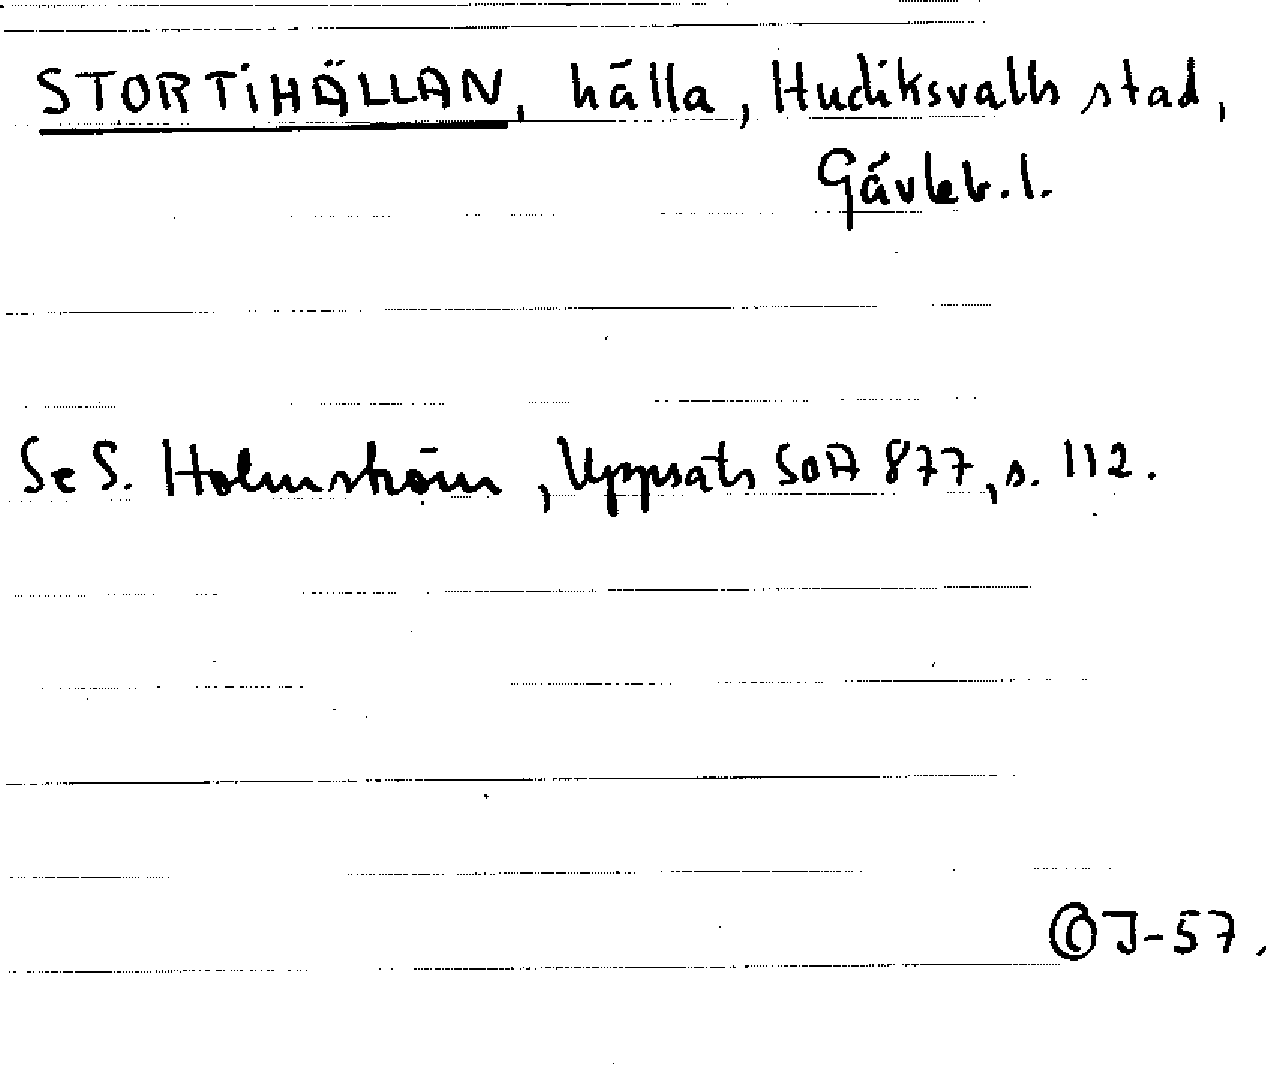 STORTIHÄLLAN, hälla, Hudiksvalls stad,
Gävleb. l.
Se S. Holmström, Uppsats SOA 877, s. 112.
ÖJ-57.